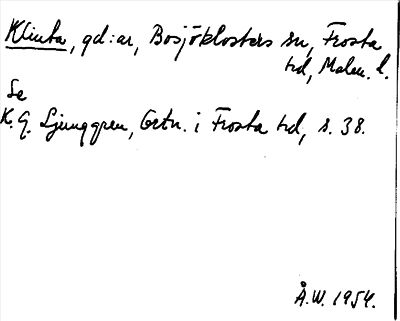 Klinta, gd:ar, Bosjöklosters sn, Frosta
hd, Malm. l.
Se
K. G. Ljunggren, Ortn. i Frosta hd, s. 38.
Å.W. 1954.